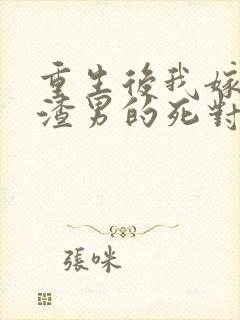 重生後我嫁
渣男的死對
張咪